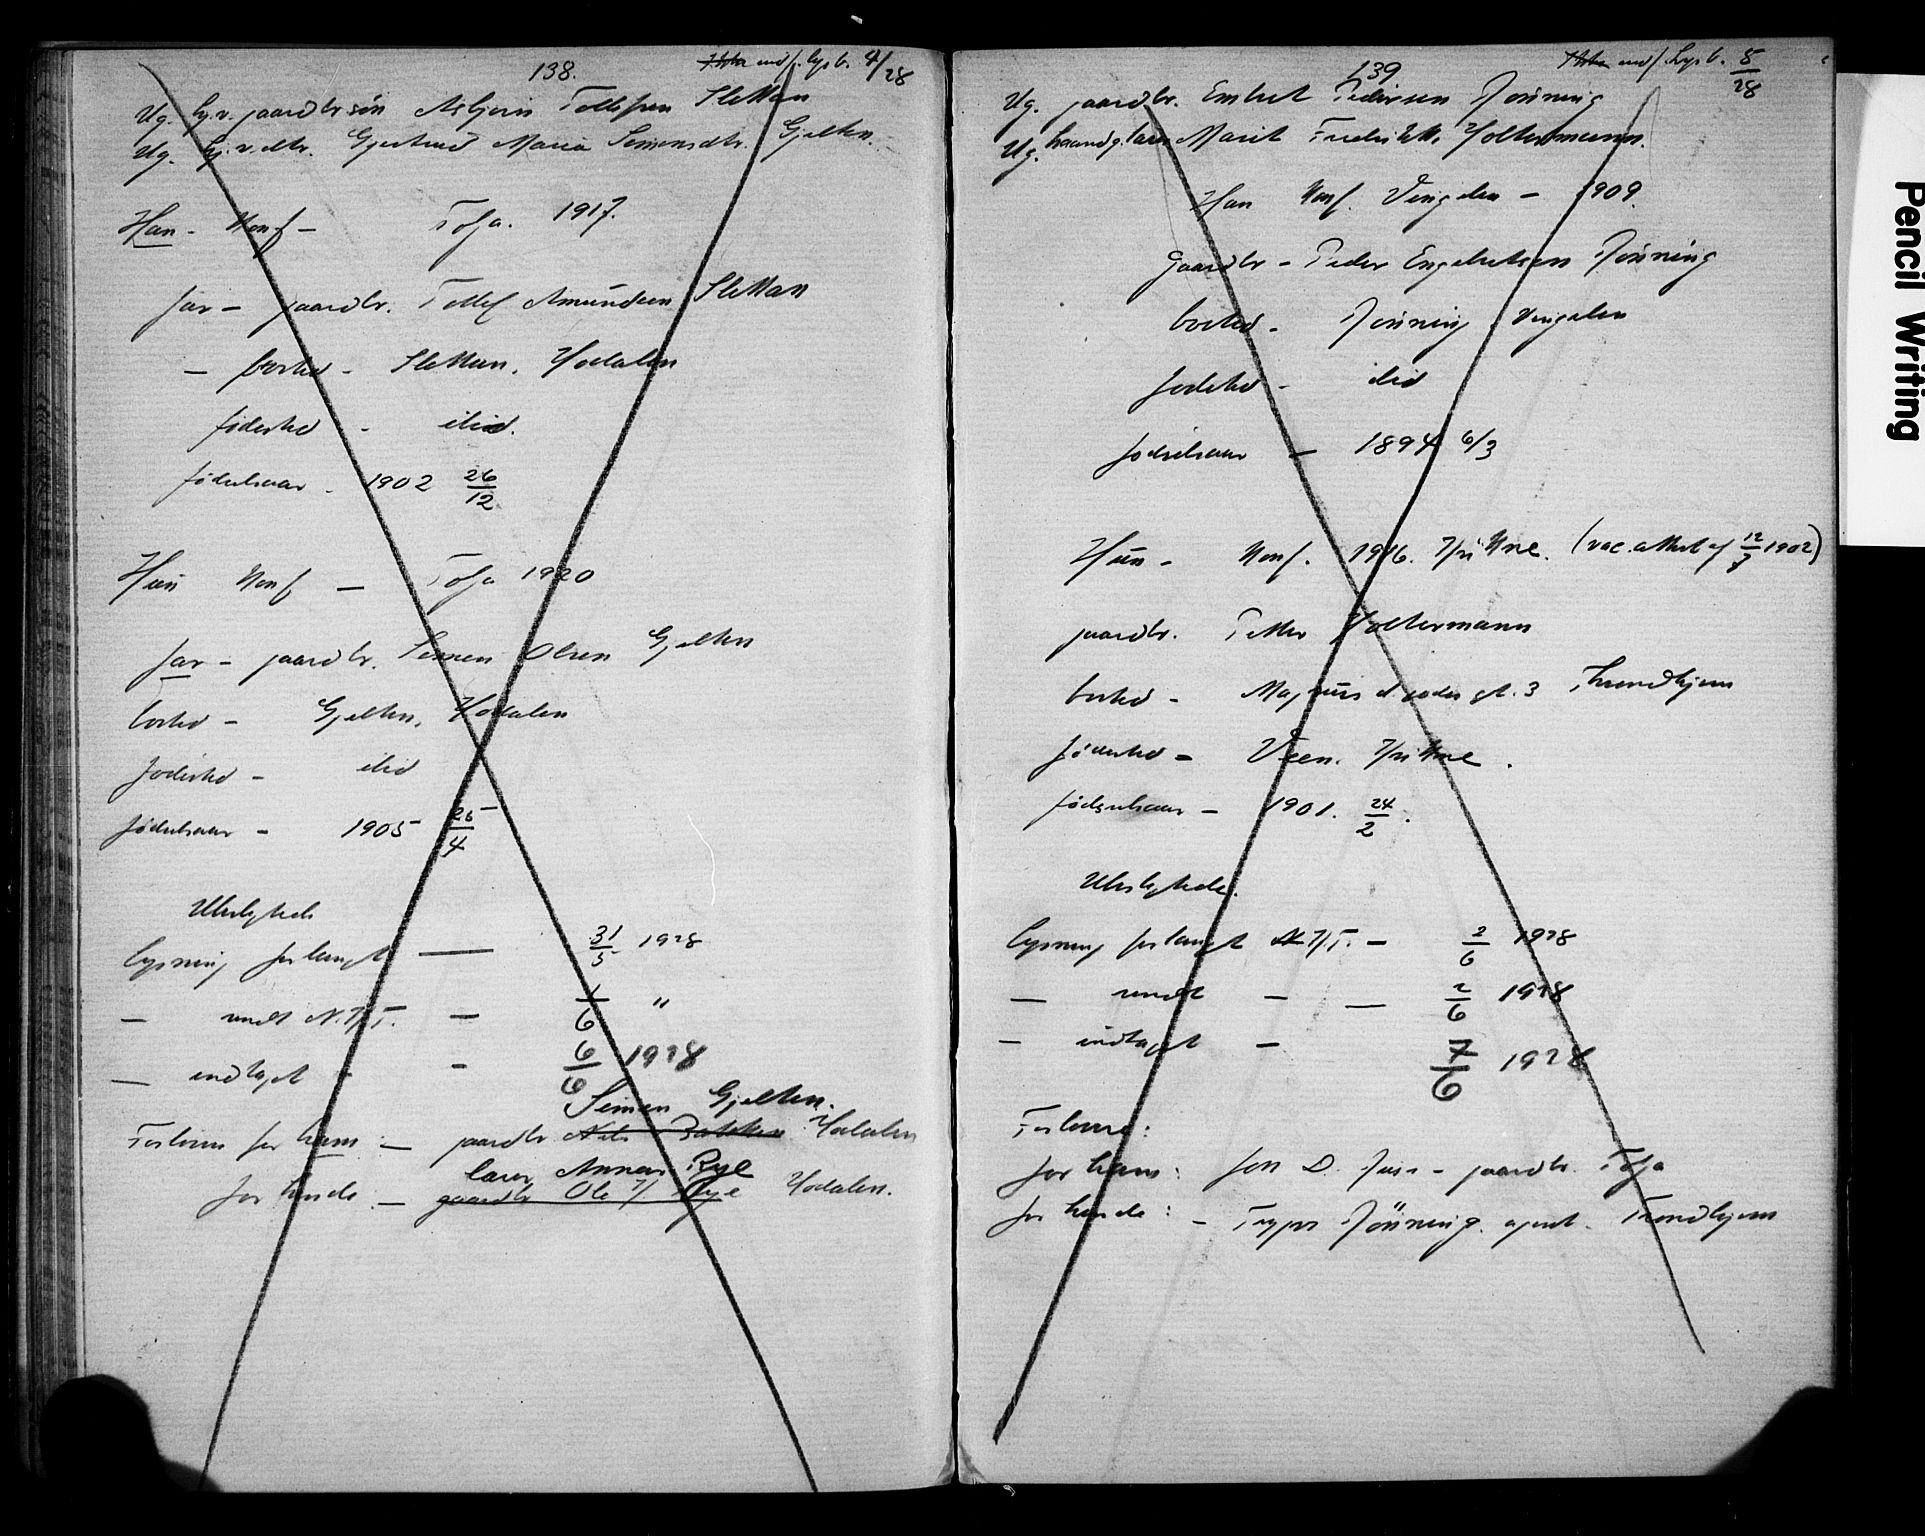 138.
indf. lysb. 4/28
Ug. hj.v. gaardbr.søn Asbjørn Tollefsen Slettan
Ug. hj.v. dtr. Gjertrud Maria Simensdtr. Gjelten.
Han - Konf - Tolga. 1917.
far - gaardbr. Tollef Amundsen Slettan
- bosted - Slettan. Hodalen
fødested - ibid.
fødselsaar - 1902 26/12
Hun Konf - Tolga 1920
far - gaardbr. Simen Olsen Gjelten
bosted - Gjelten, Hodalen
fødested - ibid
fødselsaar - 1905 25/4
Ubeslægtede
lysning forlangt — 31/5 1928
— sendt N.F.T. — 1/6 "
— indtaget - - 6/6 1928
Simen Gjelten.
Forlover for ham: — gaardbr Nils Bakken Hodalen
lærer Annar Rye
for hende. — gaardbr Ole Rye Hodalen.
139
indf. Lysb. 5/28
Ug. gaardbr. Embret Pedersen Rønning
Ug. Marit Fredrikke Holtermann.
Han Konf. Vingelen - 1909.
gaardbr - Peder Engebretsen Rønning
bosted - Rønning, Vingelen
fødested - ibid
fødselsaar - 1894 6/3
Hun - Konf. 1916. Tyinkne. (vac. attest af 12/3 1902)
gaardbr. Petter Holtermann
bosted - Magnus d. godes gt. 3 Trondhjem
fødested -
fødselsaar - 1901. 24/2.
Ubeslægtede.
lysning forlangt N.F.T. - 2/6 1928
— sendt - — 2/6 1928
— indtaget - 7/6 1928
Forlovere:
for ham: Jon D. - gaardbr. Tolga
for hende: - Trygve Rønning. agent. Trondhjem
Pencil Writing